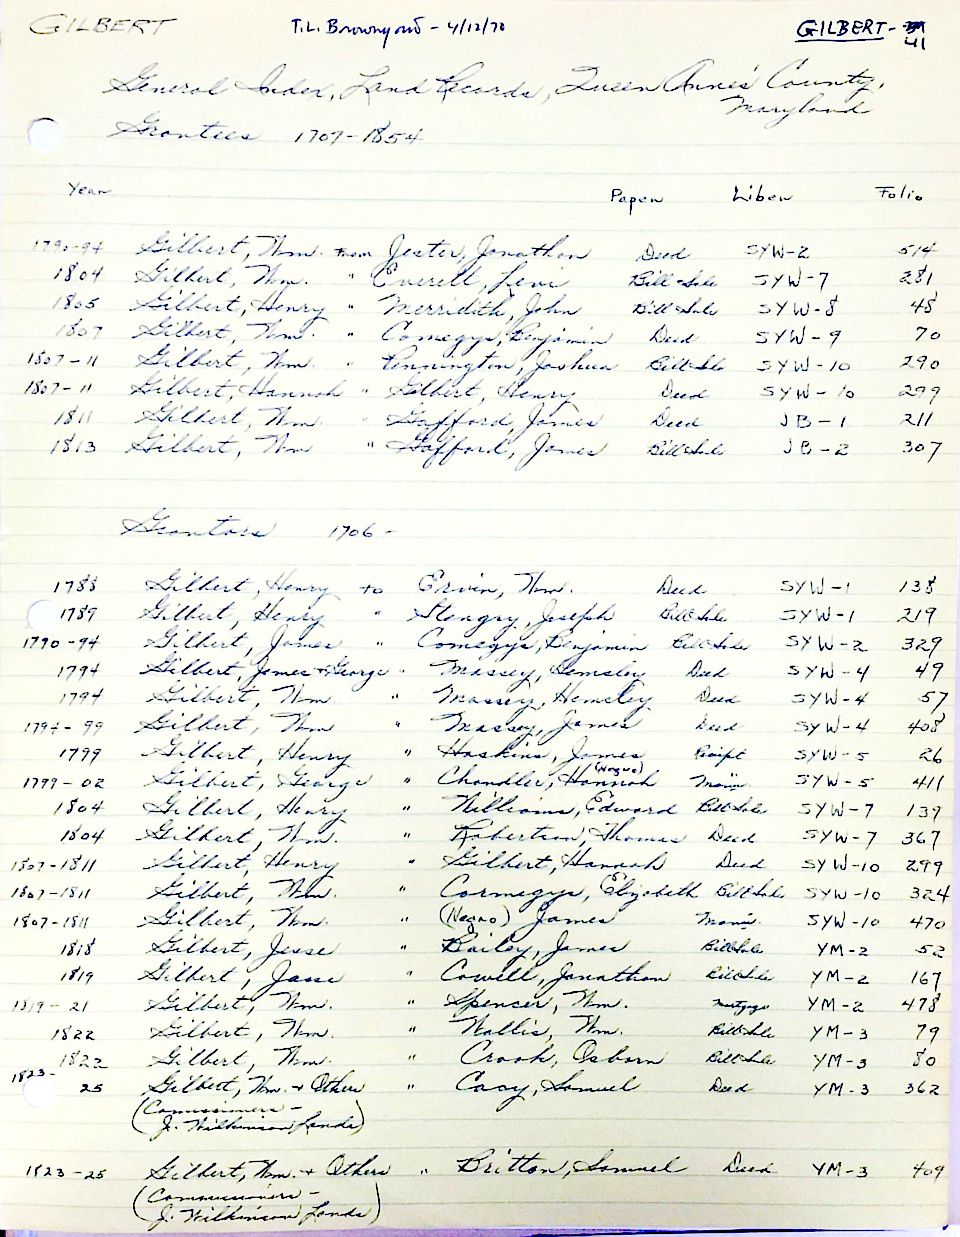 GILBERT T.L. Brownyard - 4/12/70 GILBERT - 41
General Index, Land Records, Queen Anne's County,
Maryland
Grantees 1707-1854
Year Paper Liber Folio
1790-94 Gilbert, Wm. from Jester, Jonathan Deed SYW-2 514
1804 Gilbert, Wm. " Everett, Levi Bill Sale SYW-7 281
1805 Gilbert, Henry " Merridith, John Bill Sale SYW-8 48
1807 Gilbert, Wm. " Comegys, Benjamin Deed SYW-9 70
1807-11 Gilbert, Wm. " Pennington, Joshua Bill Sale SYW-10 290
1807-11 Gilbert, Hannah " Gilbert, Henry Deed SYW-10 299
1811 Gilbert, Wm. " Gafford, James Deed JB-1 211
1813 Gilbert, Wm " Gafford, James Bill Sale JB-2 307
Grantors 1706-
1788 Gilbert, Henry to Ervin, Wm. Deed SYW-1 138
1789 Gilbert, Henry " Joseph Bill Sale SYW-1 219
1790-94 Gilbert, James " Comegys, Benjamin Bill Sale SYW-2 329
1794 Gilbert, James + George " Massey, Hemsley Deed SYW-4 49
1794 Gilbert, Wm. " Massey, Hemsley Deed SYW-4 57
1794-99 Gilbert, Wm " Massey, James Deed SYW-4 408
1799 Gilbert, Henry " Haskins, James Receipt SYW-5 26
1799-02 Gilbert, George " Chandler, Hannah (Negro) SYW-5 411
1804 Gilbert, Henry " Williams, Edward Bill Sale SYW-7 139
1804 Gilbert, Wm. " Robertson, Thomas Deed SYW-7 367
1807-1811 Gilbert, Henry " Gilbert, Hannah Deed SYW-10 299
1807-1811 Gilbert, Wm. " Cormegys, Elizabeth Bill Sale SYW-10 324
1807-1811 Gilbert, Wm. " (Negro) James SYW-10 470
1818 Gilbert, Jesse " Bailey, James Bill Sale YM-2 52
1819 Gilbert, Jesse " Cowell, Jonathan Bill Sale YM-2 167
1819-21 Gilbert, Wm. " Spencer, Wm. Mortgage YM-2 478
1822 Gilbert, Wm. " Wallis, Wm. Bill Sale YM-3 79
1822 Gilbert, Wm. " Crook, Osborn Bill Sale YM-3 80
1823-25 Gilbert, Wm. + Others " Cacy, Samuel Deed YM-3 362
(Comissioners -
J. Wilkinson Lands)
1823-25 Gilbert, Wm. + Others " Britton, Samuel Deed YM-3 409
(Commissioners -
J. Wilkinson Lands)